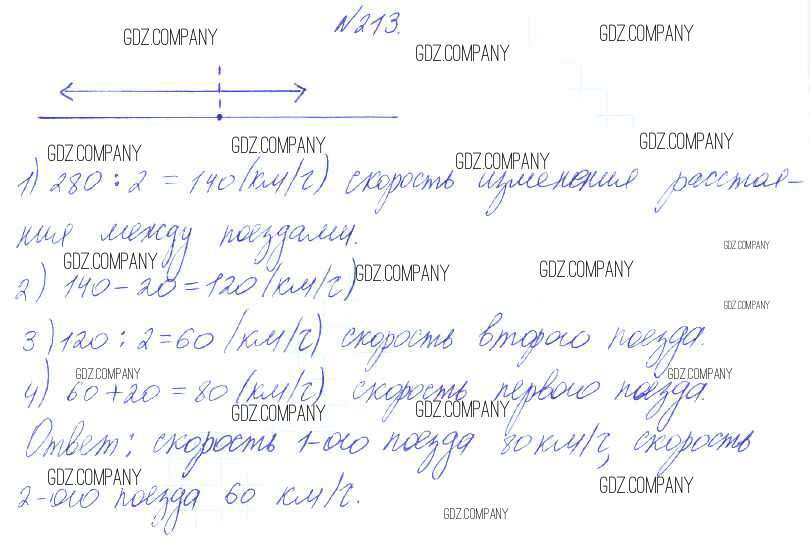 №213.
GDZ.COMPANY
GDZ.COMPANY
GDZ.COMPANY
GDZ.COMPANY
GDZ.COMPANY
GDZ.COMPANY
GDZ.COMPANY
1) 280 : 2 = 140 (км/ч) скорость изменения расстоя-
ния между поездами.
GDZ.COMPANY
GDZ.COMPANY
GDZ.COMPANY
GDZ.COMPANY
2) 140 - 20 = 120 (км/ч)
GDZ.COMPANY
3) 120 : 2 = 60 (км/ч) скорость второго поезда.
GDZ.COMPANY
GDZ.COMPANY
4) 60 + 20 = 80 (км/ч) скорость первого поезда.
GDZ.COMPANY
GDZ.COMPANY
Ответ: скорость 1-ого поезда 80 км/ч, скорость
GDZ.COMPANY
GDZ.COMPANY
2-ого поезда 60 км/ч.
GDZ.COMPANY